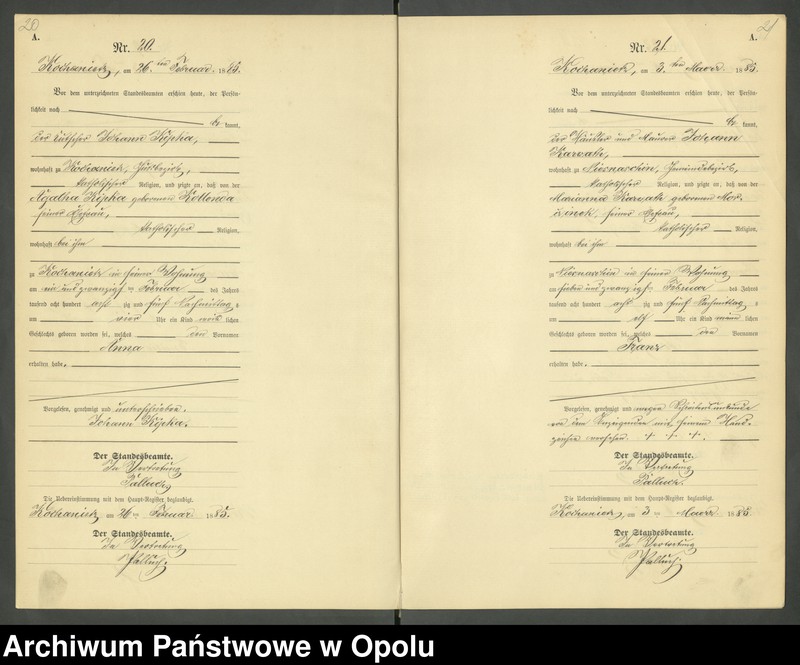 20
A.
Nr. 20.
Kochanietz, am 26ten Februar 1885.
Vor dem unterzeichneten Standesbeamten erschien heute, der Persön-
lichkeit nach
be kannt,
der Kutscher Johann
wohnhaft zu Kochanietz, Gutsbezirk,
katholischer Religion, und zeigte an, daß von der
Agatha geborenen Kollenda
seiner Ehefrau,
katholischer Religion,
wohnhaft bei ihm
zu Kochanietz in seiner Wohnung
am ein und zwanzigsten Februar des Jahres
tausend acht hundert acht zig und fünf Nachmittags
um vier Uhr ein Kind weib lichen
Geschlechts geboren worden sei, welches den Vornamen
Anna
erhalten habe.
Vorgelesen, genehmigt und unterschrieben.
Johann
Der Standesbeamte.
In Vertretung
Die Uebereinstimmung mit dem Haupt-Register beglaubigt.
Kochanietz, am 26ten Februar 1885.
Der Standesbeamte.
In Vertretung
21
A.
Nr. 21.
Kochanietz, am 3ten Maerz 1885.
Vor dem unterzeichneten Standesbeamten erschien heute, der Persön-
lichkeit nach
be kannt,
der Häusler und Maurer Johann
wohnhaft zu Gemeindebezirk,
katholischer Religion, und zeigte an, daß von der
Marianna geborenen
seiner Ehefrau,
katholischer Religion,
wohnhaft bei ihm
zu in seiner Wohnung
am sieben und zwanzigsten Februar des Jahres
tausend acht hundert acht zig und fünf Nachmittags
um elf Uhr ein Kind männ lichen
Geschlechts geboren worden sei, welches den Vornamen
Franz
erhalten habe.
Vorgelesen, genehmigt und wegen Schreibensunkunde
von dem Anzeigenden mit seinem Hand-
zeichen versehen. + + +.
Der Standesbeamte.
In Vertretung
Die Uebereinstimmung mit dem Haupt-Register beglaubigt.
Kochanietz, am 3ten Maerz 1885.
Der Standesbeamte.
In Vertretung
Archiwum Państwowe w Opolu